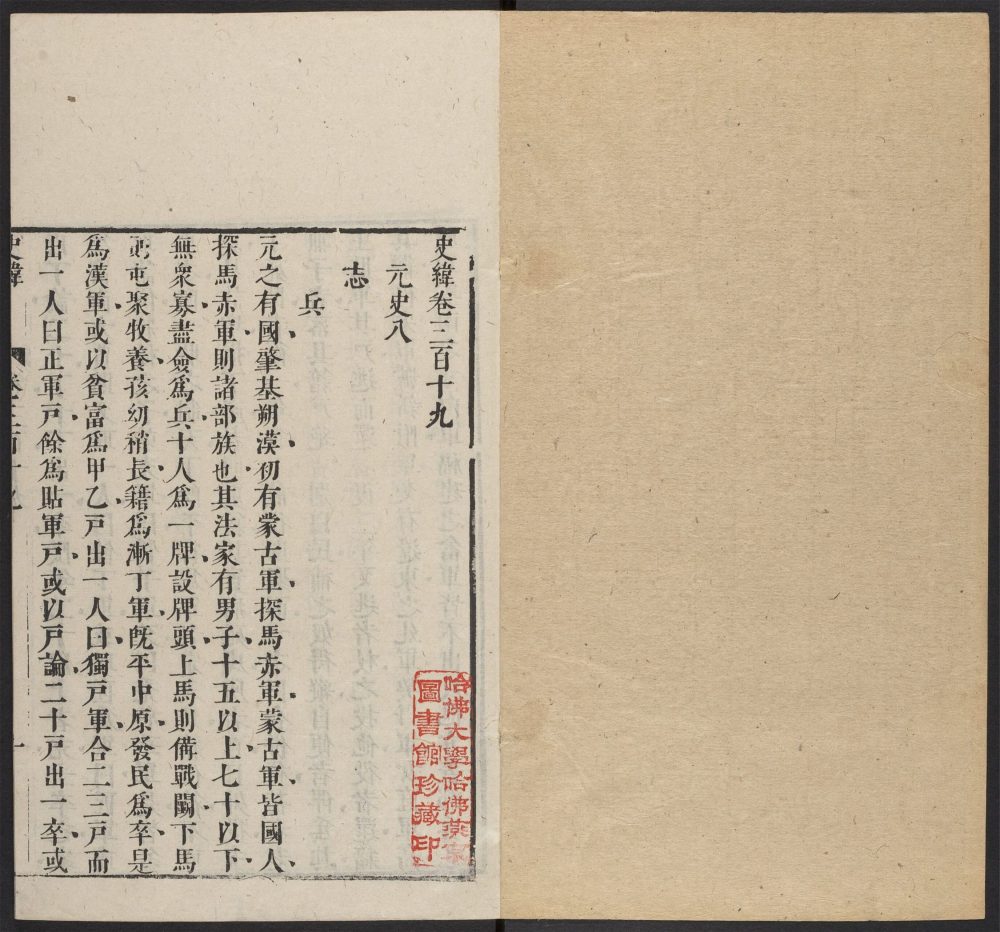 史緯卷三百十九
元史八
志
兵
元之有國肇基朔漠初有蒙古軍探馬赤軍蒙古軍皆國人
探馬赤軍則諸部族也其法家有男子十五以上七十以下
無眾寡盡僉爲兵十人爲一牌設牌頭上馬則備戰鬭下馬
則屯聚牧養孩幼稍長籍爲漸丁軍旣平中原發民爲卒是
爲漢軍或以貧富爲甲乙戸出一人曰獨戸軍合二三戸而
出一人曰正軍戸餘爲貼軍戸或以戸論二十戸出一卒或
史緯
卷三百十九
一
哈佛大學哈佛燕京
圖書館珍藏印